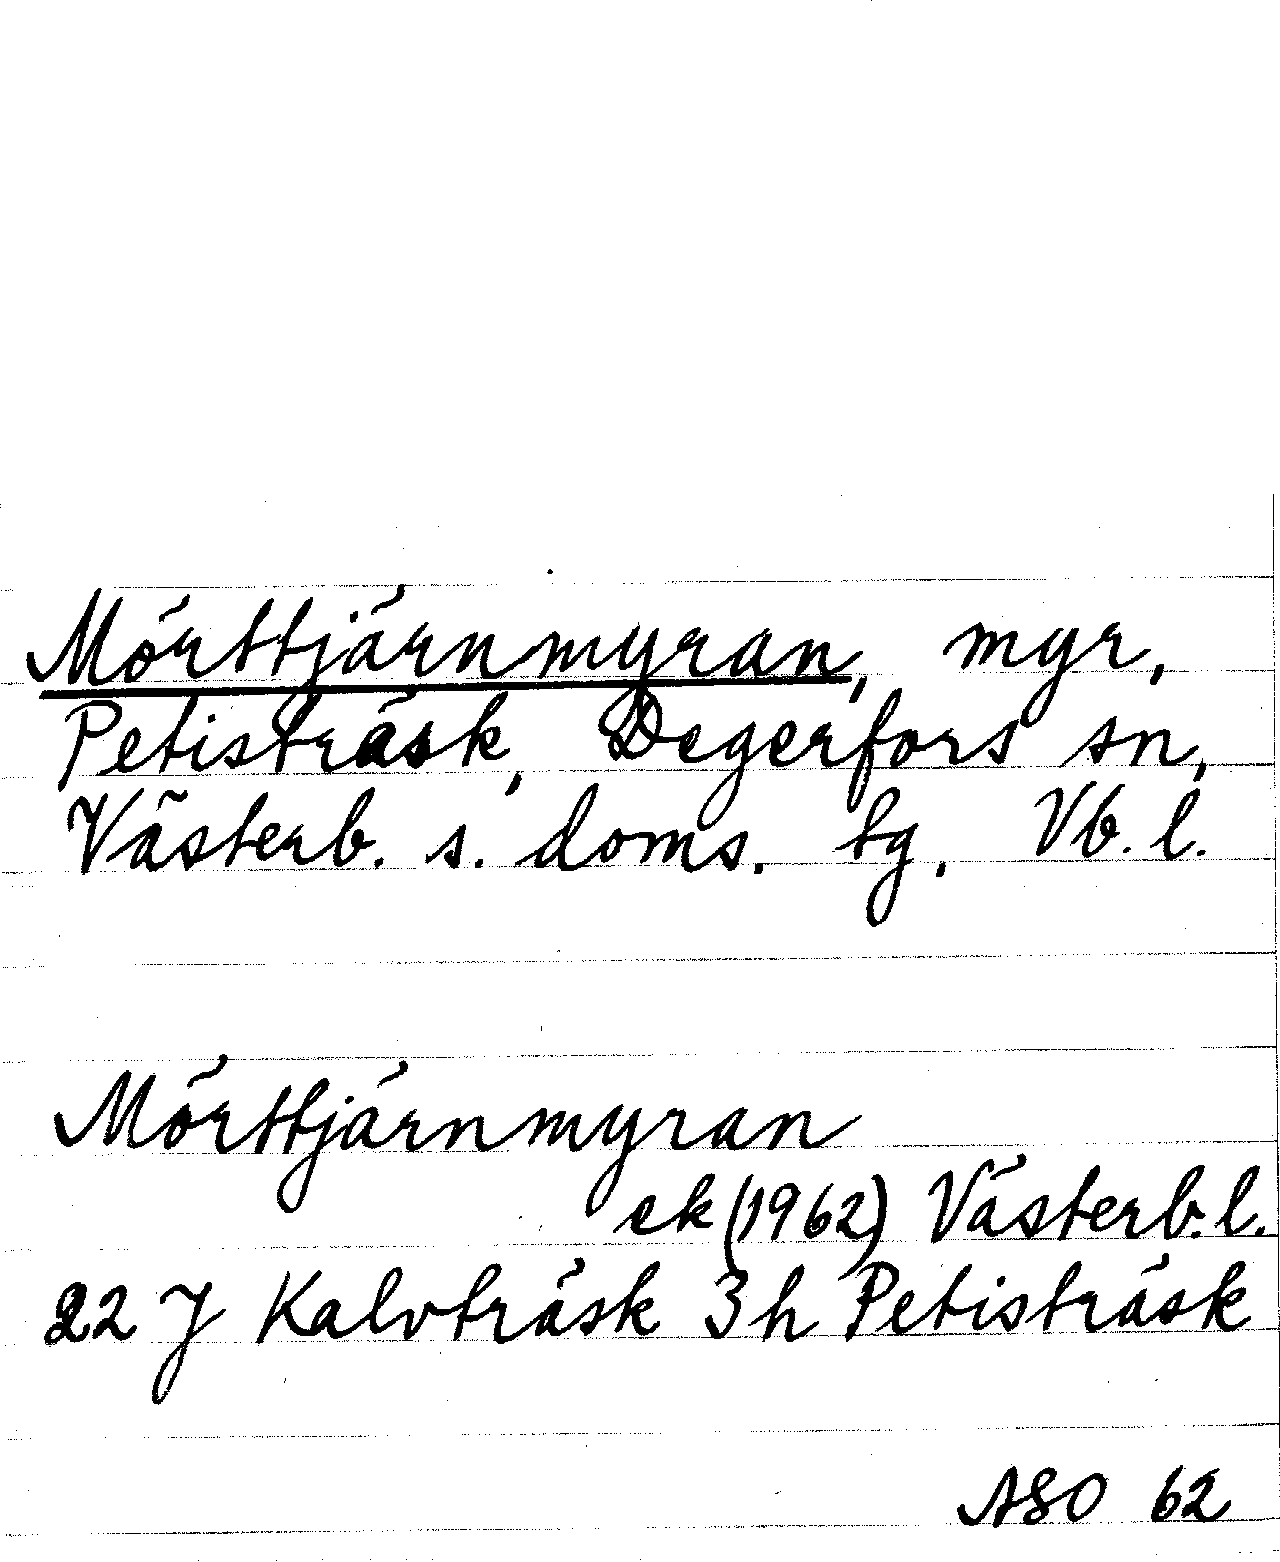 Mörttjärnmyran, myr,
Petisträsk, Degerfors sn,
Västerb. s. doms. tg, Vb. l.
Mörttjärnmyran
ek (1962) Västerb. l.
22 J Kalvträsk 3 h Petisträsk
ASO 62